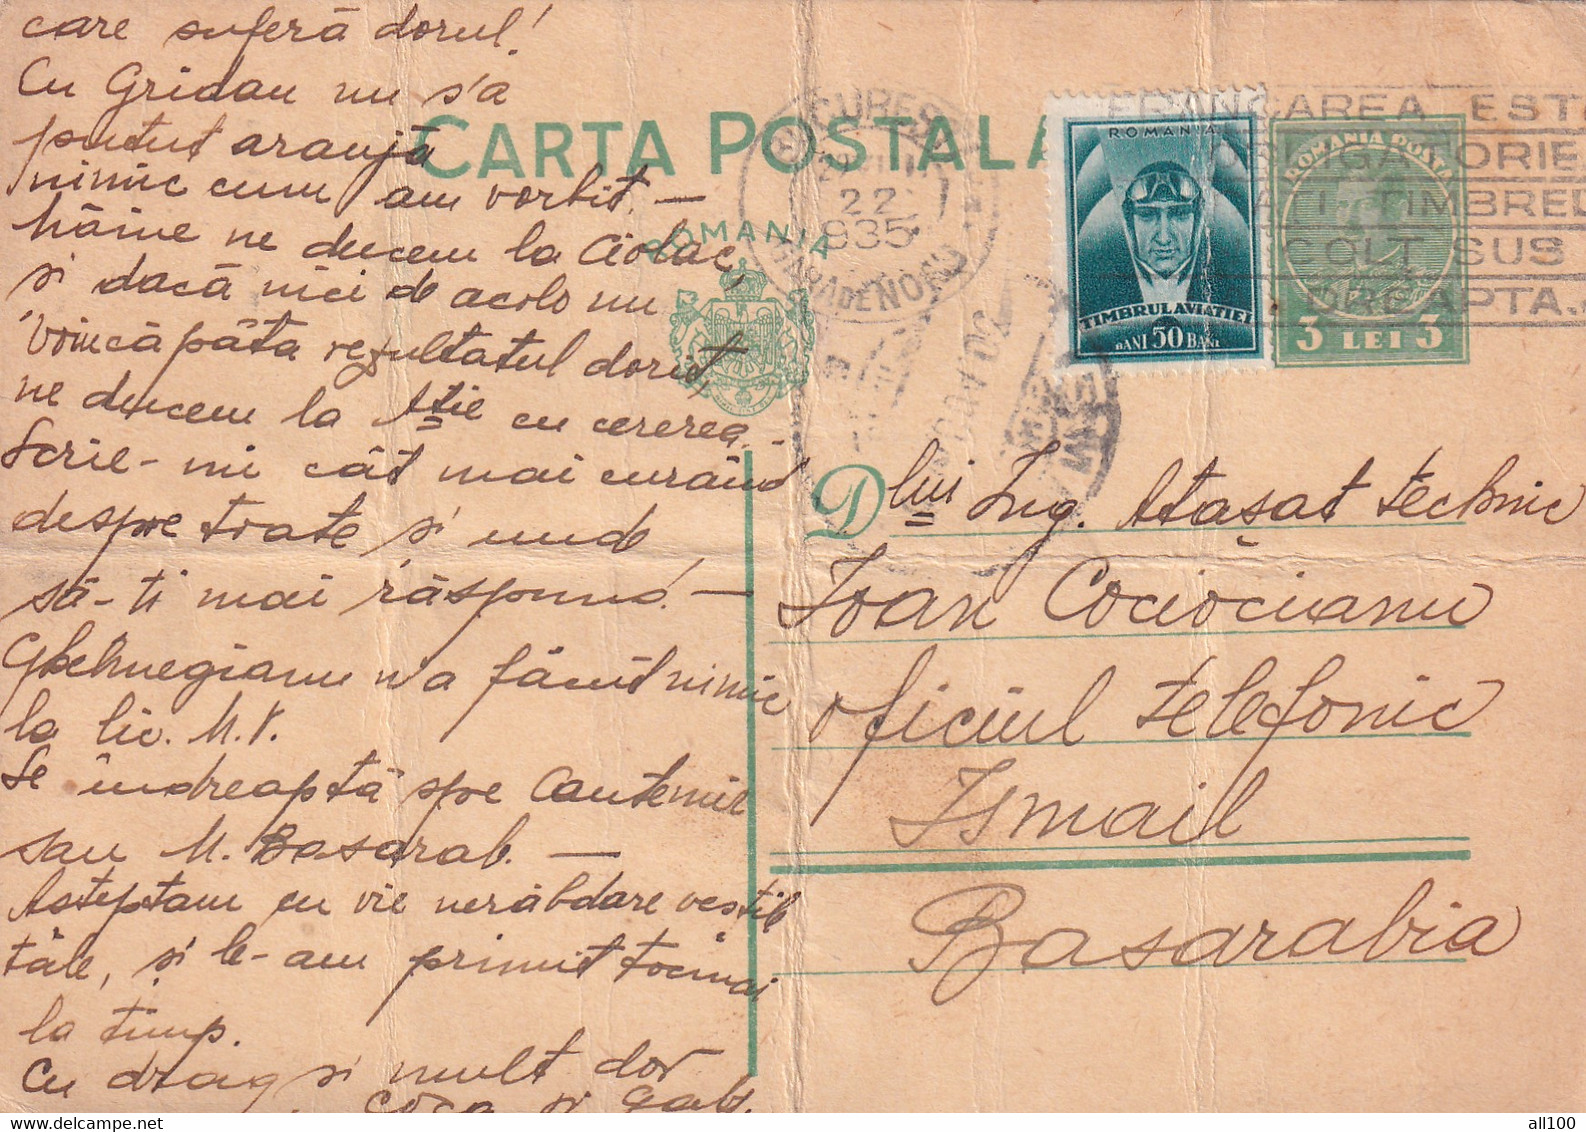 care suferă dorul!
Cu Gridau nu s'a
putut aranjă
nimic cum am vorbit. —
Mâine ne ducem la Ciolac,
și dacă nici de acolo nu
voincăpăta rezultatul dorit,
ne ducem la Atie cu cererea. -
Scrie-mi cât mai curând
despre toate și unde
să-ți mai răspund. —
n'a făcut nimic
la lic. M.V.
Se îndreaptă spre Cantemir
sau M. Basarab. —
Așteptam cu vie nerăbdare veștile
tăle, și le-am primit tocmai
la timp.
Cu drag și mult dor
Coca și Gab.
CARTA POSTALA
ROMANIA
BUCUREȘTI
22
935
GARA DE NORD
ROMANIA
TIMBRUL AVIATIEI
BANI 50 BANI
FRANCAREA ESTE
OBLIGATORIE
TIMBREL
COLT SUS
DREAPTA.
ROMANIA POSTA
3 LEI 3
Dlui Ing. Atașat technic
Ioan Cociocianu
oficiul telefonic
Ismail
Basarabia
all100